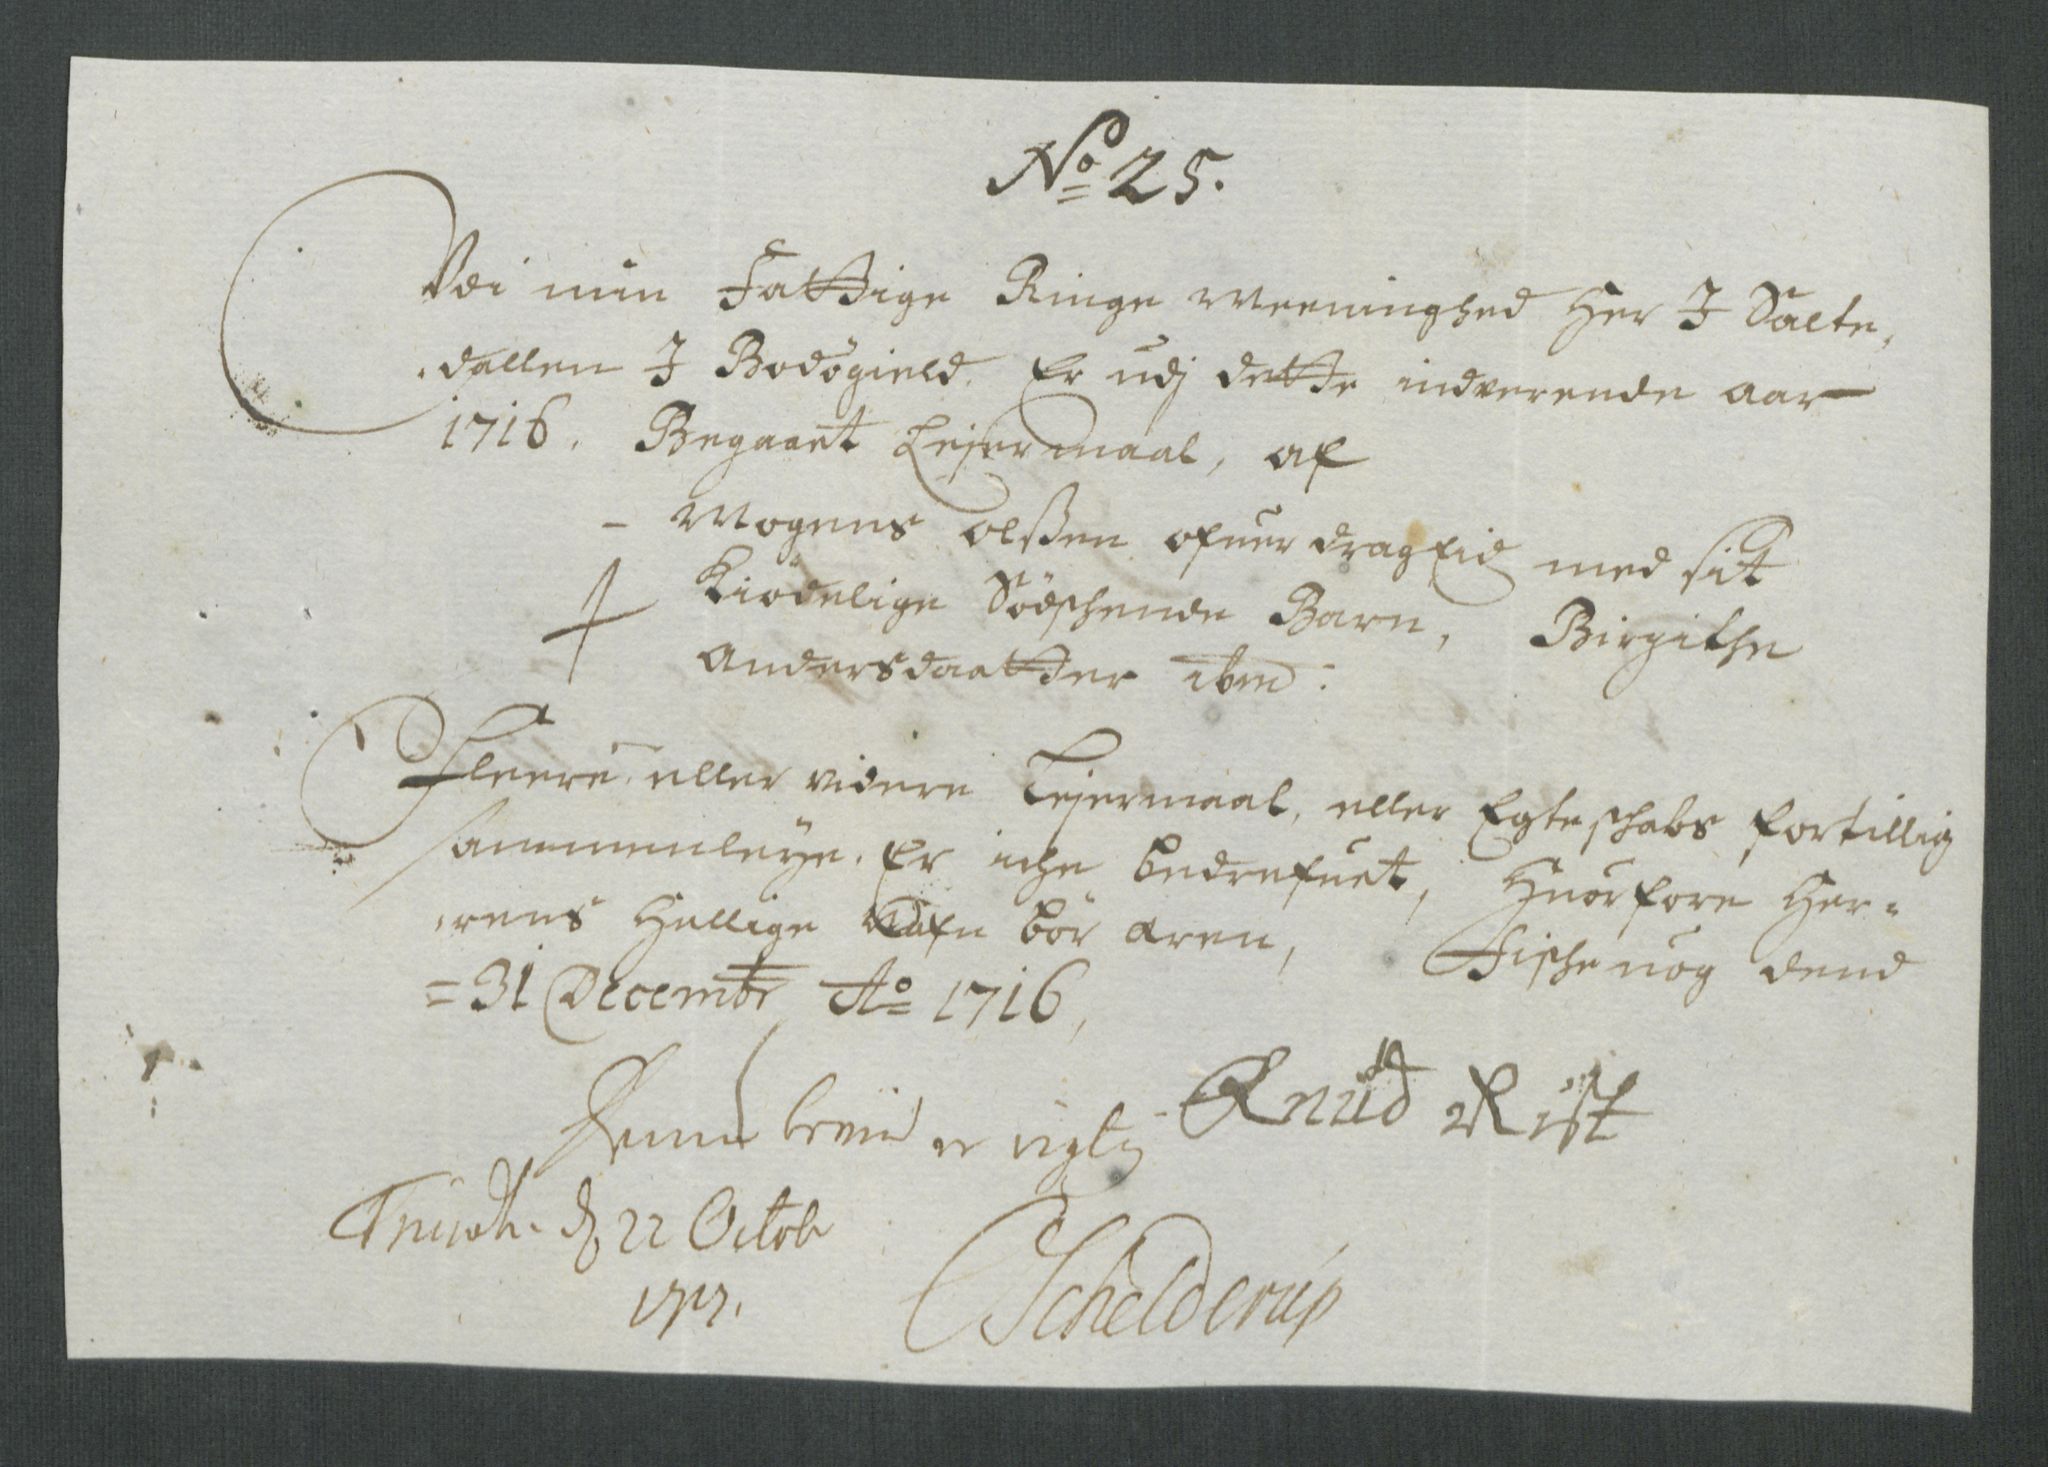 No 25.
Vdi min Fattige Ringe Meeninghed Her J Salte,
dallen J Bodøgield. Er udj dette indverende aar
1716. Begaaet Lejermaal, af
- Mogens olßen ofuer dragEid med sit
Kiødelige Sødschende Barn, Birgithe
Andersdaatter ibm:
Fleere eller videre Lejermaal, eller Egteschabs fortillig
sammenleye. Er iche bedrefuet, Huorfore Her=
rens Hellige Nafn bør æren, Fische nog dend
=31 Decembr Ao 1716,
Knud Rist
Denne er rigtig
Trundh. d 22 Octob
1717.
Schelderup